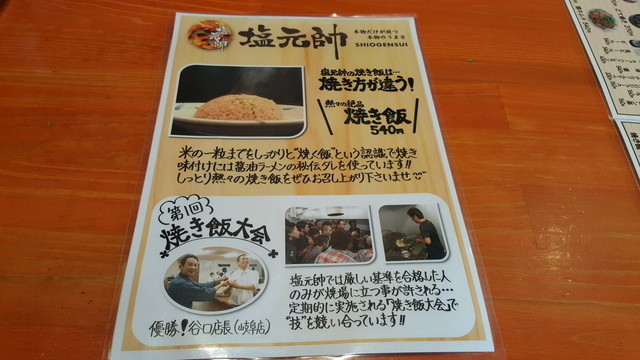 塩元帥
塩元帥
本物だけが放つ
本物のうまさ
SHIOGENSUI
塩元帥の焼き飯は…
焼き方が違う!
熱々の絶品
焼き飯
540円
米の一粒までをしっかりと"焼く飯"という認識で焼き
味付けには醤油ラーメンの秘伝ダレを使っています!!
しっとり熱々の焼き飯をぜひお召し上がり下さいませ
第1回
焼き飯大会
優勝!谷口店長(岐阜店)
塩元帥では厳しい基準を合格した人
のみが焼場に立つ事が許される…
定期的に実施される「焼き飯大会」で
"技"を競い合っています!!